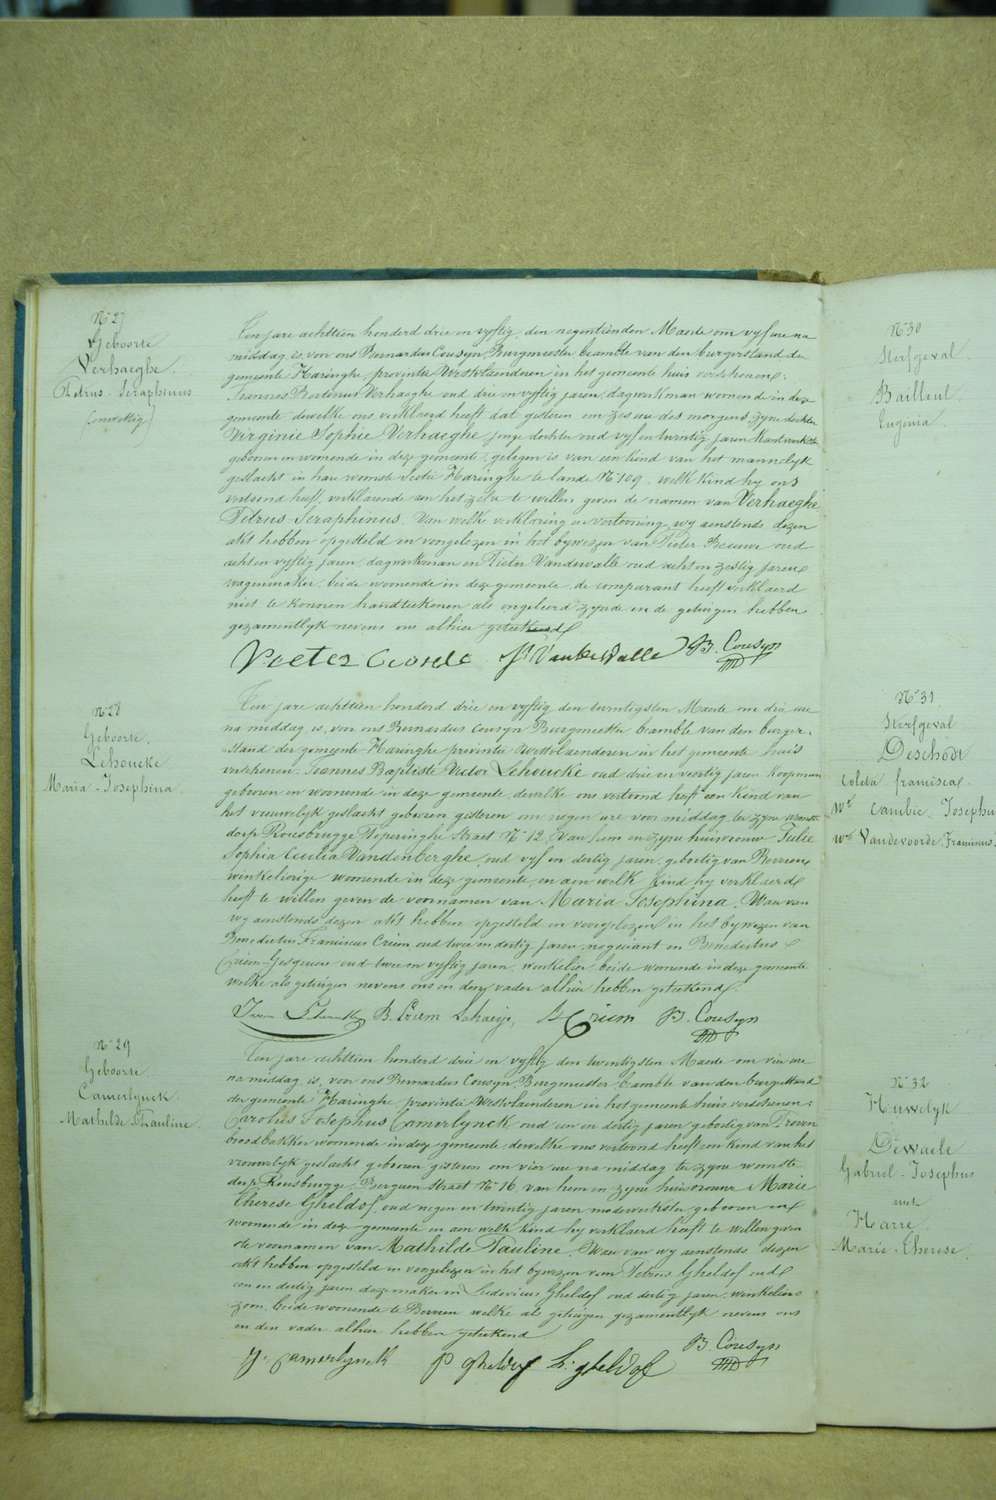 N° 27
Geboorte
Verhaeghe
Petrus Seraphinus
(onwettig)
Ten jare achttien honderd drie en vyftig den negentienden Maerte om vyf ure na
middag, is voor ons Bernardus Cousyn Burgmeester beambte van den burgerstand der
gemeente Haringhe provintie Westvlaenderen in het gemeente huis verschenen:
Joannes Baptiste Verhaeghe oud drie en vyftig jaren, dagwerkman wonende in deze
gemeente dewelke ons verklaerd heeft dat gisteren om zes ure des morgens zyne dochter
Virginie Sophie Verhaeghe jonge dochter oud vyf en twintig jaren Kantwerkster
geboren en woonende in deze gemeente, gelegen is van een kind van het mannelyk
geslacht in hare woonste Sectie Haringhe te lande N° 109 welk kind hy ons
vertoond heeft, verklarende aen het zelve te willen geven de namen van Verhaeghe
Petrus Seraphinus. Van welke verklaring en vertooning wy aenstonds dezen
akt hebben opgesteld en voorgelezen in het bywezen van Pieter oud
acht en vyftig jaren, dagwerkman en Pieter Vandewalle oud acht en zestig jaren
wagenmaker, beide woonende in deze gemeente, de comparant heeft verklaerd
niet te konnen handteekenen als ongeleerd zynde en de getuigen hebben
gezamentlyk nevens ons alhier geteekend
Pieter P: Vandewalle B. Cousyn
N° 28
Geboorte
Lehoucke
Maria-Josephina
Ten jare achttien honderd drie en vyftig den twintigsten Maerte om drie ure
na middag is, voor ons Bernardus Cousyn Burgmeester beambte van den burger-
stand der gemeente Haringhe provintie Westvlaenderen in het gemeente huis
verschenen: Joannes Baptiste Victor Lehoucke oud drie en veertig jaren Koopman
geboren en woonende in deze gemeente, dewelke ons vertoond heeft een kind van
het vrouwelyk geslacht geboren gisteren om negen ure voor middag te zyne woonste
dorp Rousbrugge Poperinghe straet N° 12, van hem en zyne huisvrouw Julie
Sophia Cecilia Vandenberghe, oud vyf en dertig jaren, geboortig van Beveren
winkelierige woonende in deze gemeente, en aen welk kind hy verklaerd
heeft te willen geven de voornamen van Maria Josephina. Waer van
wy aenstonds dezen akt hebben opgesteld en voorgelezen in het bywezen van
Benedictus Franciscus Crium oud twee en dertig jaren negociant en Benedictus
Crium oud twee en vyftig jaren, winkelier, beide woonende in deze gemeente
welke als getuigen nevens ons en dezen vader alhier hebben geteekend
B. Crium B Crium B. Cousyn
N° 29
Geboorte
Camerlynck
Mathilde Pauline
Ten jare achttien honderd drie en vyftig den twintigsten Maerte om vier ure
na middag is, voor ons Bernardus Cousyn Burgmeester beambte van den burgerstand
der gemeente Haringhe provintie Westvlaenderen in het gemeente huis verschenen:
Carolus Josephus Camerlynck oud een en dertig jaren geboortig van Proven
broodbakker woonende in deze gemeente dewelke ons vertoond heeft een kind van het
vrouwelyk geslacht geboren gisteren om vier ure na middag te zyne woonste
dorp Rousbrugge Berguen straet N° 16, van hem en zyne huisvrouw Marie
Therese Gheldof oud negen en twintig jaren modewerkster geboren en
woonende in deze gemeente en aen welk kind hy verklaerd heeft te willen geven
de voornamen van Mathilde Pauline. Waer van wy aenstonds dezen
akt hebben opgesteld en voorgelezen in het bywezen van Petrus Gheldof oud
een en dertig jaren en Ludovicus Gheldof oud dertig jaren, winkeliers
zoon, beide woonende te Beveren welke als getuigen gezamentlyk nevens ons
en den vader alhier hebben geteekend
Camerlynck P Gheldof L: gheldof B. Cousyn
N° 30
Sterfgeval
Bailleul
Eugenia
N° 31
Sterfgeval
Deschodt
Coleta francisca
We Cambie Josephus
We Vandevoorde Franciscus
N° 32
Huwelyk
Dewaele
Gabriel-Josephus
met
Harre
Marie-Therese